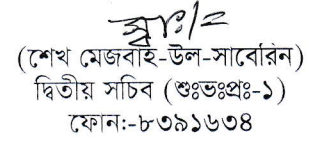 স্বাঃ/=
(শেখ মেজবাহ-উল-সাবেরিন)
দ্বিতীয় সচিব (শুঃভঃপ্রঃ-১)
ফোন:-৮৩৯১৬৩৪